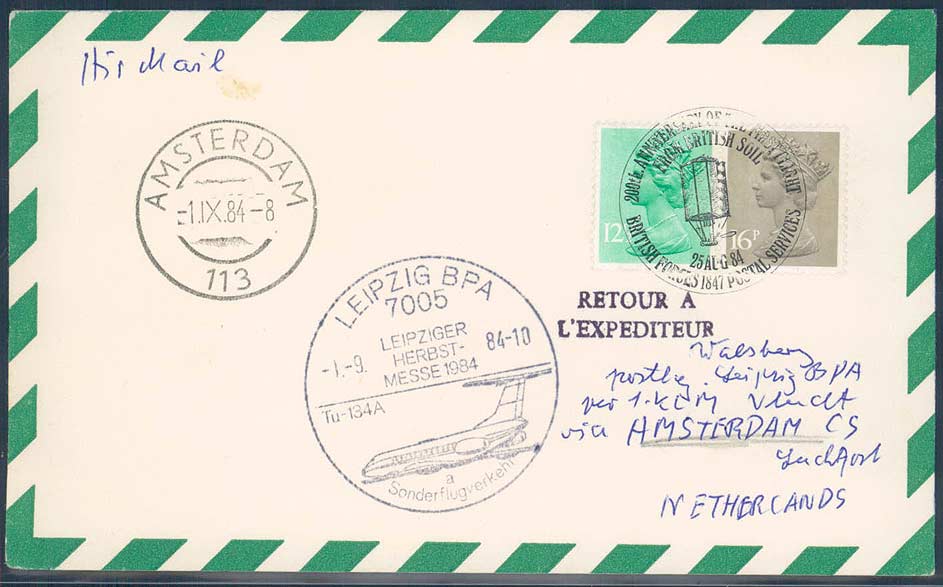 Air Mail
AMSTERDAM
-1.IX.84-8
113
200th. ANNIVERSARY OF THE FIRST FLIGHT
FROM BRITISH SOIL
25 AUG 84
BRITISH FORCES 1847 POSTAL SERVICES
12
16P
RETOUR A
L'EXPEDITEUR
LEIPZIG BPA
7005
LEIPZIGER
HERBST-
MESSE 1984
-1.-9. 84-10
Tu-134A
a
Sonderflugverkehr
Walsberg
postlag. Leipzig BPA
per 1. KLM Vlucht
via AMSTERDAM CS
Luchtpost
NETHERLANDS